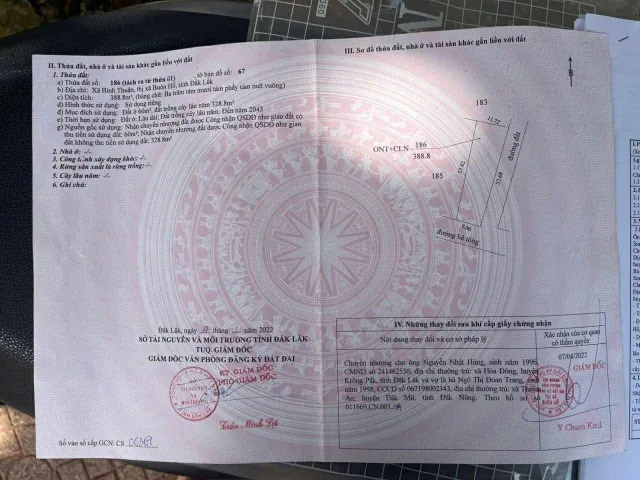 II. Thửa đất, nhà ở và tài sản khác gắn liền với đất
1. Thửa đất:
a) Thửa đất số: 186 (tách ra từ thửa 61) tờ bản đồ số: 67
b) Địa chỉ: Xã Bình Thuận, thị xã Buôn Hồ, tỉnh Đắk Lắk
c) Diện tích: 388.8m², (bằng chữ: Ba trăm tám mươi tám phẩy tám mét vuông)
d) Hình thức sử dụng: Sử dụng riêng
đ) Mục đích sử dụng: Đất ở 60m², đất trồng cây lâu năm 328.8m²
e) Thời hạn sử dụng: Đất ở: Lâu dài; Đất trồng cây lâu năm: Đến 2043
g) Nguồn gốc sử dụng: Nhận chuyển nhượng đất được Công nhận QSDĐ như giao đất có
thu tiền sử dụng đất: 60m²; Nhận chuyển nhượng đất được Công nhận QSDĐ như giao
đất không thu tiền sử dụng đất: 328.8m²
2. Nhà ở: -/-
3. Công trình xây dựng khác: -/-
4. Rừng sản xuất là rừng trồng: -/-
5. Cây lâu năm: -/-
6. Ghi chú:
Đắk Lắk, ngày tháng 2022
SỞ TÀI NGUYÊN VÀ MÔI TRƯỜNG TỈNH ĐẮK LẮK
TUQ. GIÁM ĐỐC
GIÁM ĐỐC VĂN PHÒNG ĐĂNG KÝ ĐẤT ĐAI
KT. GIÁM ĐỐC
PHÓ GIÁM ĐỐC
Số vào sổ cấp GCN: CS
III. Sơ đồ thửa đất, nhà ở và tài sản khác gắn liền với đất
B
183
11.77
đường đất
186
ONT+CLN
388.8
185
đường bê tông
IV. Những thay đổi sau khi cấp giấy chứng nhận
Nội dung thay đổi và cơ sở pháp lý
Xác nhận của cơ quan
có thẩm quyền
Chuyển nhượng cho ông Nguyễn Nhật Hùng, sinh năm 1996,
CMND số 241462530, địa chỉ thường trú: xã Hòa Đông, huyện
Krông Pắk, tỉnh Đắk Lắk và vợ là bà Ngô Thị Đoan Trang, sinh
năm 1998, CCCD số 067198002343, địa chỉ thường trú: xã
An, huyện Đắk Mil, tỉnh Đắk Nông. Theo hồ sơ số
011669.CN.001
07/04/2022
GIÁM ĐỐC